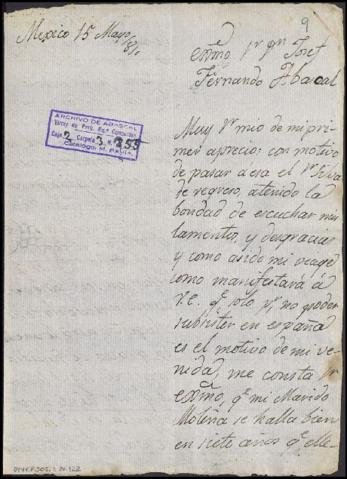 9
Mexico 15 Mayo/
81/.
exmo Sr Dn Josef
Fernando Abacal
ARCHIVO DE ABASCAL
Virrey de Perú
Caja 2 Carpeta 3 N. 255
Muy Sr mio de mi pri
mer aprecio: con motivo
de pasar a esa el Sr
de regreso, atenido la
bondad de escuchar mis
lamentos, y desgracias
y como asido mi viage
como manifestará á
V.e. qe solo pr no poder
subsistir en españa
es el motivo de mi ve-
nida, me consta Sr
exmo, qe mi Marido
Molina se halla bien
en siete años qe elle-